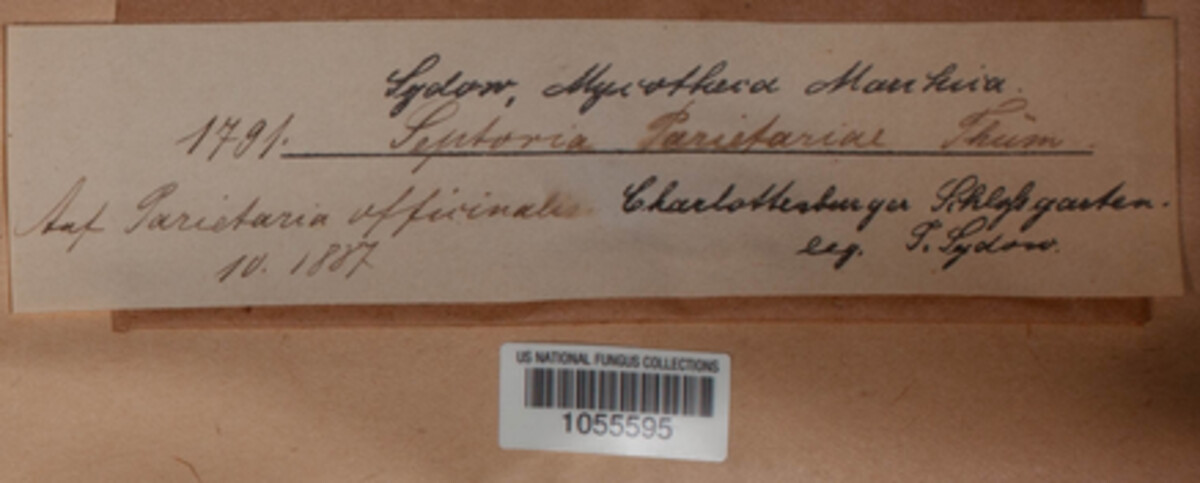 Sydow, Mycotheca Marchica.
1791. Septoria Parietariae Thüm.
Auf Parietaria officinalis Charlottenburger Schloßgarten.
10. 1887 leg. P. Sydow.
US NATIONAL FUNGUS COLLECTIONS
1055595